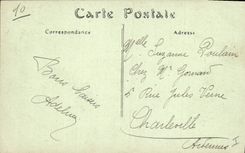 10
Carte Postale
Correspondance
Adresse
Bons baisers
Melle Suzanne Poulain
Chez Mr
5 Rue Jules Verne
Charleville
Ardennes